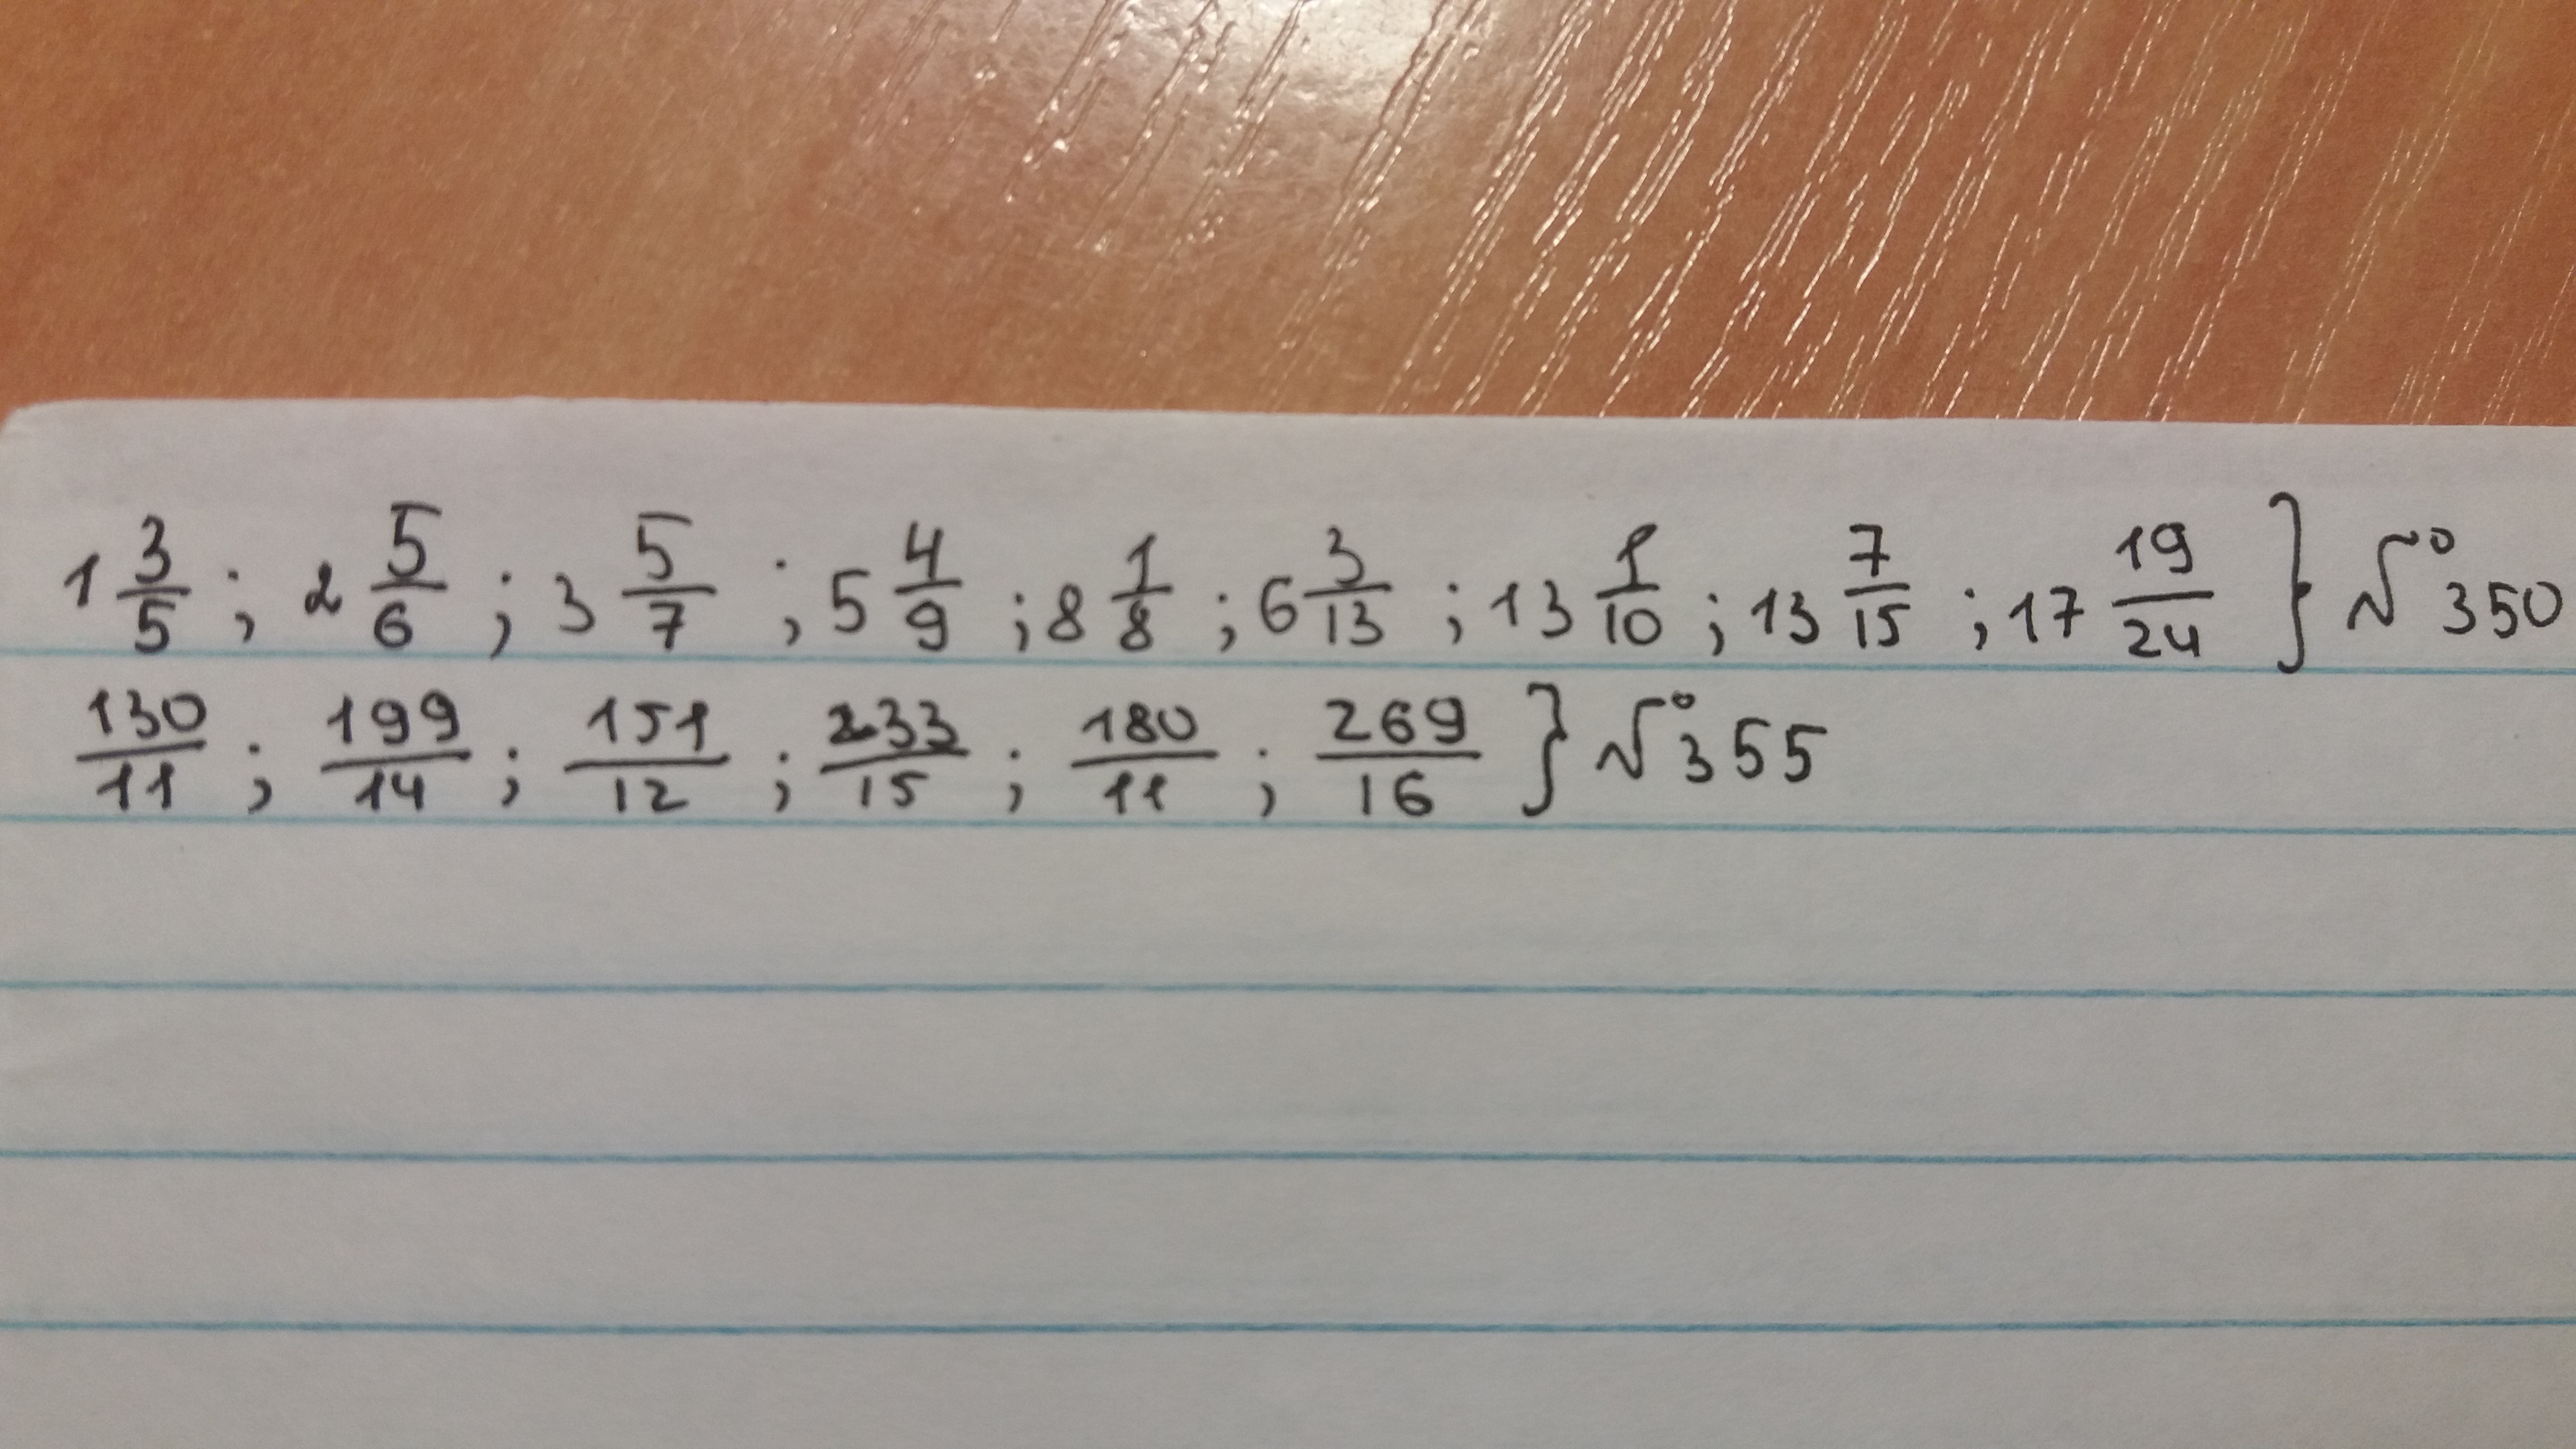 1 3/5 ; 2 5/6 ; 3 5/7 ; 5 4/9 ; 8 1/8 ; 6 3/13 ; 13 1/10 ; 13 7/15 ; 17 19/24 } № 350
130/11 ; 199/14 ; 151/12 ; 233/15 ; 180/11 ; 269/16 } № 355